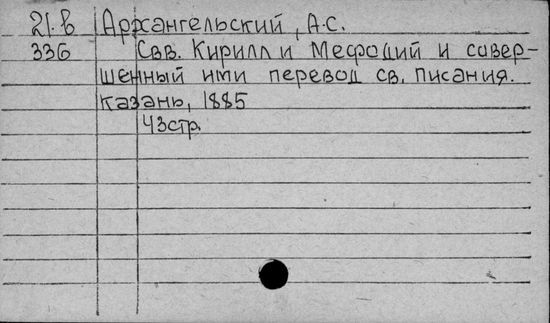 21.в Архангельский, А.С.
336 Свв. Кирилл и Мефодий и совер-
шенный ими перевод св. писания.
Казань, 1885
43стр.